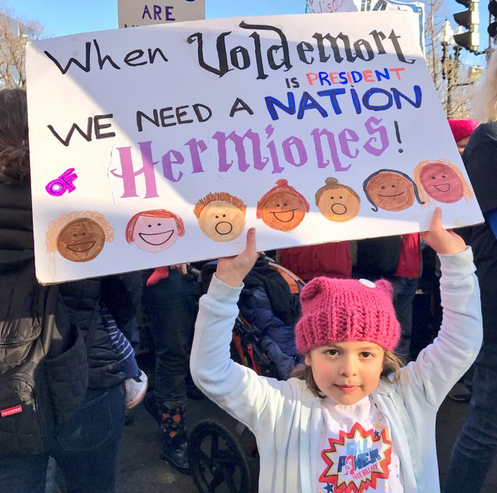 ARE
When Voldemort
IS PRESIDENT
WE NEED A NATION
OF Hermiones!
GIRL
POWER